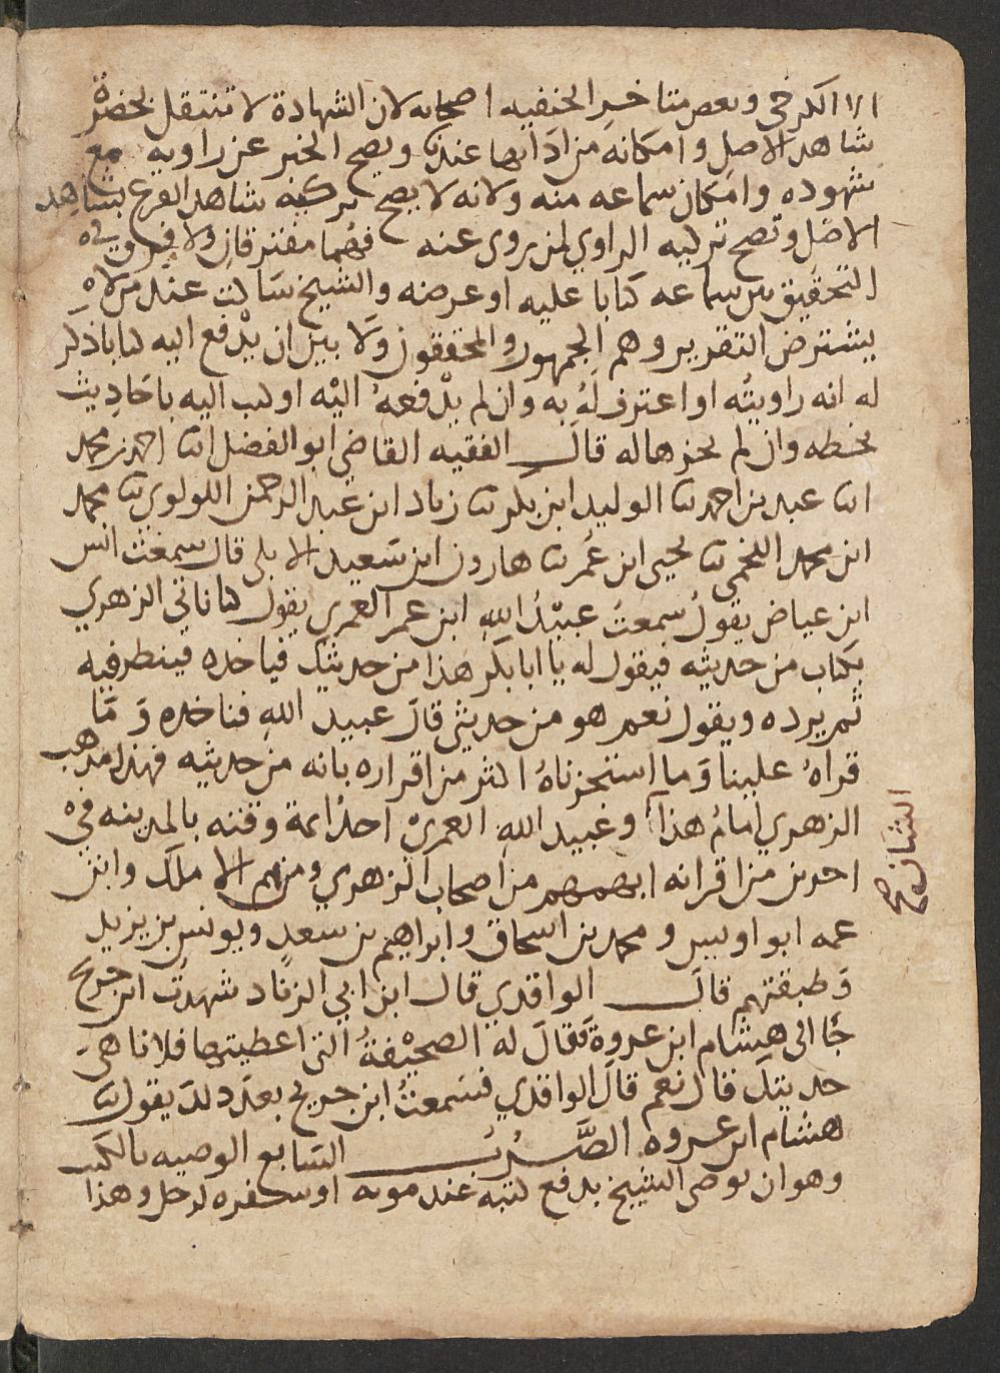 الا الكرخي وبعض متاخر الحنفيه اصحابه لان الشهادة لا تنتقل بحضرة
شاهد الاصل وامكانه من ادابها عندنا ويصح الخبر عن راويه مع
شهوده وامكان سماعه منه ولانه لا يصح تزكيه شاهد الفرع بشاهد
الاصل وتصح تزكيه الراوي لمن يروى عنه فهما مفترقان ولا فرق في
التحقيق بين سماعه كتابا عليه او عرضه والشيخ ساكت عند من لا
يشترض التقرير وهم الجمهور والمحققون ولا بين ان يدفع اليه كتابا ذكر
له انه راويته او اعترف له به وان لم يدفعه اليه او كتب اليه باحاديث
بخطه وان لم يجزها له قال الفقيه القاضي ابو الفضل انا احمد بن محمد
انا عبد بن احمد نا الوليد ابن بكر نا زياد ابن عبد الرحمن اللولوي نا محمد
ابن محمد اللخمي نا يحيى ابن عمر نا هارون ابن سعيد الايلي قال سمعت انس
ابن عياض يقول سمعت عبيد الله ابن عمر العمري يقول كنا ناتي الزهري
بكتاب من حديثه فيقول له يا ابا بكر هذا من حديثك فياخذه فينظر فيه
ثم يرده ويقول نعم هو من حديثي قال عبيد الله فناخذه وما
قراه علينا وما استنجزناه اكثر من اقراره بانه من حديثه فهذا مذهب
الزهري امام هذا الشان صح وعبيد الله العمري احد ايمة وقته بالمدينه في
اخرين من اقرانه من اصحاب الزهري ومنهم ملك وابن
عمه ابو اويس ومحمد بن اسحاق وابراهيم بن سعد ويونس بن يزيد
وطبقتهم قال الواقدي قال ابن ابي الزناد شهدت ابن جريج
جا الى هشام ابن عروة فقال له الصحيفة التي اعطيتها فلانا هي
حديثك قال نعم قال الواقدي فسمعت ابن جريج بعد ذلك يقول نا
هشام ابن عروه الضرب السابع الوصيه بالكتب
وهو ان يوصي الشيخ بدفع كتبه عند موته او سفره لرجل وهذا